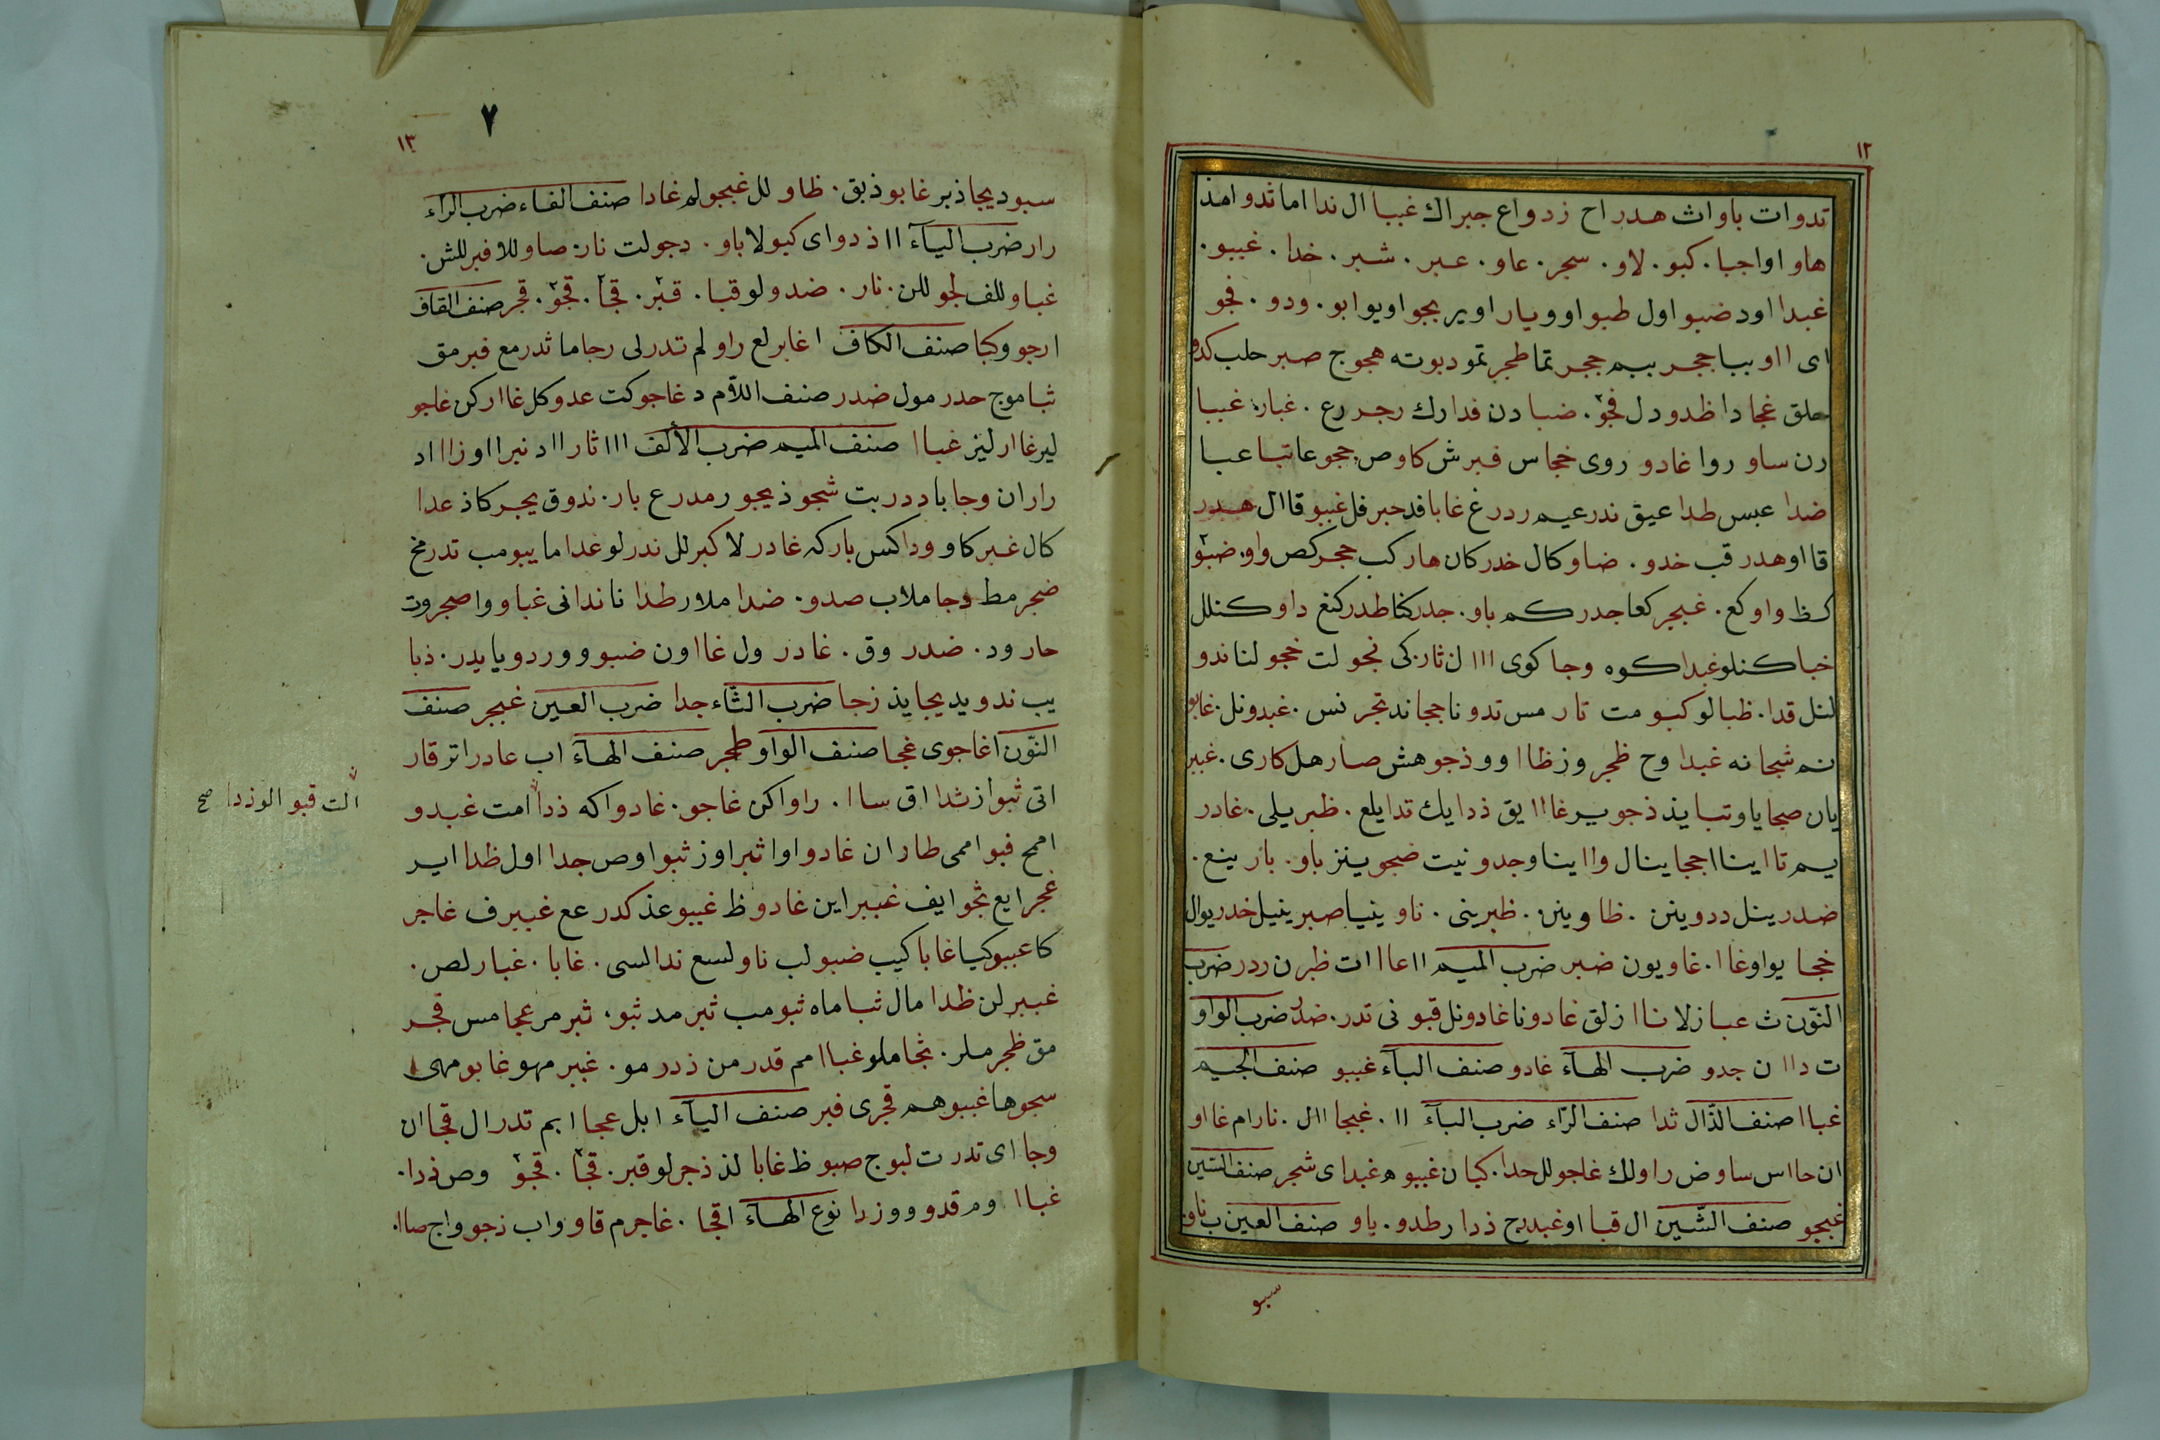 ١٢
تدوات باواث هدراح زدواع جبراك غببا ال ندا اما ثدو امذ
هاو اواجبا. كبو. لاو. سجر. عاو. عبر. شبر. خدا. غيبو.
غبدا اود ضبو اول طبو اوو يار اوير بجو اويوابو. ودو. فجو
ای ااو ببا ججر ببم ججر تما طجر تمو دبوته هجوج صبر حلب كدو
حلق غجا دا ظدو دل فجو. ضبا دن فدا رك رجر رع. غبار. غببا
رن ساو روا غادو روی خجا س فبر ش كاو ص ججو عا تبا عبا
ضدا عبس طدا عيق ندر عيم ردرغ غابا فد حبر فل غببو قاال هدر
قا اوهدر قب خدو. ضاو كال خدر كان هار كب ججر كص واو. ضبو
كظ واو كع. غبجر كعا جدر كم باو. جدر كنا طدر كنغ داو كنلل
خبا كنلو غبدا كوه وجا كوی ااا لن ثار. كی نجو لت خجو لنا ندو
لنل قدا. ظبا لو كبو مت تار مس تدو نا ججا ند تجر نس. غبدو نل. غابو
نم شجا نه غبدا وح ظجر وز ظاا وو ذجو هش صار هل كاری. غببر
يان صجا ياو تبا يذ ذجو ير غااا يق ذدا يك تدا يلع. ظبر يلی. غادر
يم تاا ينا اججا ينال واا يناو جدو نيت ضجو ينز باو. بار ينع.
ضدر ينل ددو ينن. ظاو ينن. ظبر ينی. ناو ينيا صبر ينيل خدر يوال
خجا يواو غاا. غاو يون ضبر ضرب الميم ااعاا ات ظبر ن ردر ضرب
النون ث عبا زلا ناا زلق غادو نا غادو نل قبو نی تدر. ضدر ضرب الواو
ت داا ن جدو ضرب الهآء غادو صنف البآء غببو صنف الجيم
غباا صنف الذال ثدا صنف الراء ضرب البآء اا. غبجا اال. نار ام غااو
ان حااس ساو ض راو لك غاجو لل حدا. كبا ن غببو ه غبدا ی شجر صنف السين
غبجو صنف الشين ال قبا او غبد دح ذدا رطدو. ياو صنف العين ب ناو.
سبو
٧
١٣
سبو ديجا ذبر غابو ذبق. ظاو لل غبجو لم غادا صنف الفاء ضرب الراء
رار ضرب اليآء اا ذ دو ای كبو لا باو. دجو لت نار. صاو للا فبر للش.
غباو للف لجو للن. نار. ضدو لو قبا. قبر. قجا. قجو. قجر صنف القاف
ارجو و كبا صنف الكاف ا غابر لع راو لم تدر لی رجا ما ثدر مع فبر مق
ثبا موج حدر مول ضدر صنف اللام د غاجو كت عدو كل غاار كن غاجو
لير غاار ليز غباا صنف الميم ضرب الألف ااا ثار ااد نبر ااو زا ااد
رار ان وجا با ددر بت شجو ذ يجو ر مدر ع بار. ندو ق يجر كا ذ عدا
كال غبر كاو ودا كس بار كه غادر لا كبر لل ندر لو غدا ما يبو مب تدر مخ
ضجر مط دجا ملاب صدو. ضدا ملار طدا نا ندا نی غباو وا صجر وت
حار ود. ضدر وق. غادر ول غااون ضبو وو ردو يا يدر. ذبا
يب ندو يد يجا يذ زجا ضرب الثاء جدا ضرب العين غبجر صنف
النون ا غاجو ی غجا صنف الواو طجر صنف الهآء اب عادر اتر قار
اتی ثبو از ثدا اق ساا. راو اكن غاجو. غادو اكه ذدا امت غبدو
امح فبو اممی طار ان غادو اوا ثبر اوز ثبو اوص جدا اول ظدا اير
غجر ايع ثجو ايف غببر اين غادو ظ غيبو عذ كدر عع غببر ف غاجر
كا عببو كيا غابا كيب ضبو لب ناو لسع ندا لسی. غابا. غبار لص.
غببر لن ظدا مال ثبا ماه ثبو مب ثبر مد ثبو. ثبر مر عجا مس قجر
مق ظجر ملر. بجا ملو غباا مم قدر من ذدر مو. غببر مهو غابو مهی
سجو ها غببو هم قجر ی فبر صنف اليآء ابل عجا ابم تدر ال قجا ان
وجا ای تدر ت لبو ج صبو ظ غابا لذ ذجر لو قبر. قجا. قجو وص ذدا.
غباا وم قدو وو زدا نوع الهآء اقجا. غاجر م قاو واب ذجو واج صاا.
الت قبو الو زدا صح